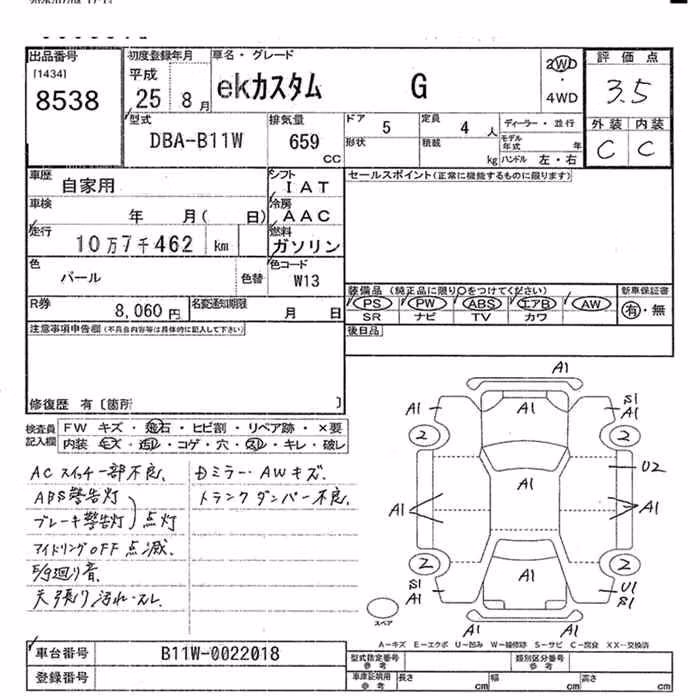 出品番号
[1434]
8538
初度登録年月
平成
25 8月
車名・グレード
ekカスタム G
2WD
・
4WD
評価点
3.5
外装 内装
C C
型式
DBA-B11W
排気量
659
CC
ドア 5
定員 4 人
形状
積載 kg
ディーラー・並行
モデル年式 年
ハンドル 左・右
車歴
自家用
シフト
IAT
車検
年 月( 日)
冷房
AAC
走行
10万7千462 km
燃料
ガソリン
色
パール
色替
色コード
W13
R券
8,060円
名変通知期限
月 日
セールスポイント(正常に機能するものに限ります)
装備品(純正品に限り○をつけてください)
新車保証書
PS PW ABS エアB AW
SR ナビ TV カワ
有・無
後日品
注意事項申告欄(不具合内容等は具体的に記入して下さい)
修復歴 有〔箇所 〕
検査員
記入欄
FW キズ・飛石・ヒビ割・リペア跡・×要
内装 ・コゲ・穴・スレ・キレ・破レ
ACスイッチ一部不良、
ABS警告灯
ブレーキ警告灯 点灯
アイドリングOFF点滅、
廻り音、
天張り汚れ・スレ
ミラー・AWキズ、
トランクダンパー不良、
A1
A1
A1
S1
A1
2
2
U2
A1
A1
A1
2
2
A1
S1
A1
U1
S1
A1
スペア
A-キズ E-エクボ U-凹み W-補修跡 S-サビ C-腐食 XX-交換済
車台番号
B11W-0022018
登録番号
型式指定番号
参考
類別区分番号
参考
車庫証明用
参考
長さ cm
幅 cm
高さ cm